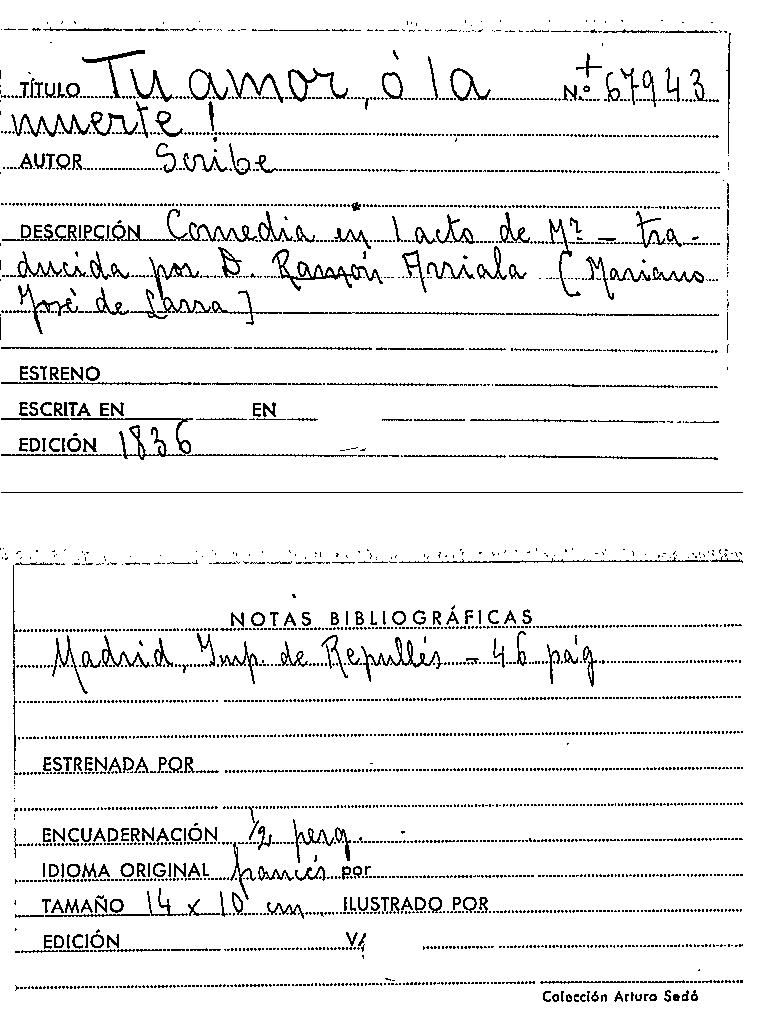 TÍTULO Tu amor, ó la N.º + 67943
muerte!
AUTOR Scribe
DESCRIPCIÓN Comedia en 1 acto de Mr. – tra-
ducida por D. Ramón Arriala [Mariano
José de Larra]
ESTRENO
ESCRITA EN EN
EDICIÓN 1836
NOTAS BIBLIOGRÁFICAS
Madrid, Imp. de Repullés – 46 pág.
ESTRENADA POR
ENCUADERNACIÓN 1/2 perg.
IDIOMA ORIGINAL francés por
TAMAÑO 14 x 10 cm. ILUSTRADO POR
EDICIÓN V/
Colección Arturo Sedó